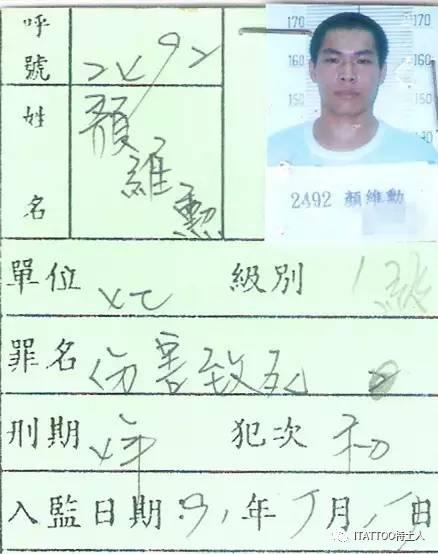 呼號 2492
姓名 顏維勳
170 170
160 160
150 150
2492 顏維勳
單位 級別 1級
罪名 伤害致死
刑期 年 犯次 初
入監日期:91年 月 日
ITATTOO特士人